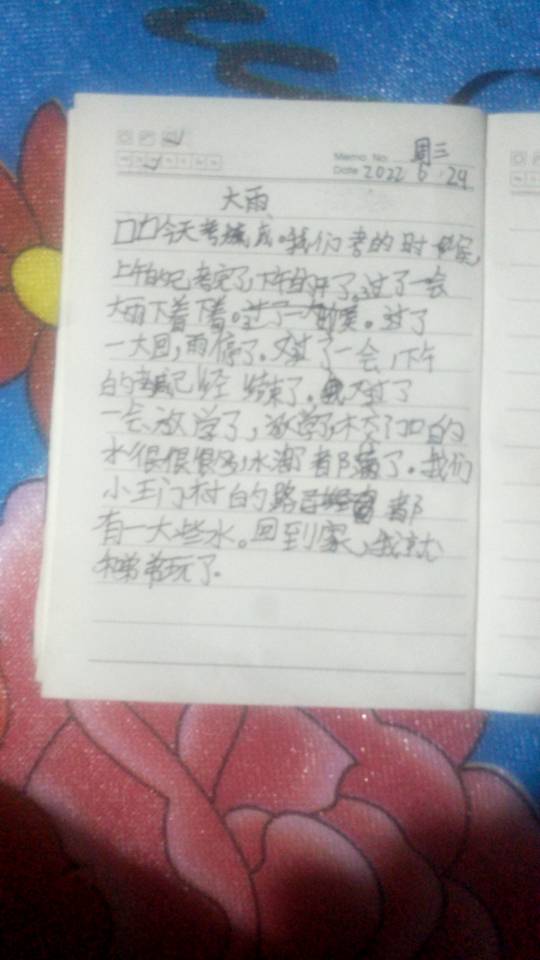 Memo No. 周三
Date 2022 6.29
大雨
口口今天考试。我们考的时候,
上午的已考完了,下午的开了。过了一会
大雨下着下着。过了一大。过了
一大回,雨停了。又过了一会,下午
的考试已经结束了。又过了
一会放学了,放学了,校门口的
水很很很多,水都满了。我们
小王门村的路都
有一大些水。回到家,我就
和弟弟玩了.